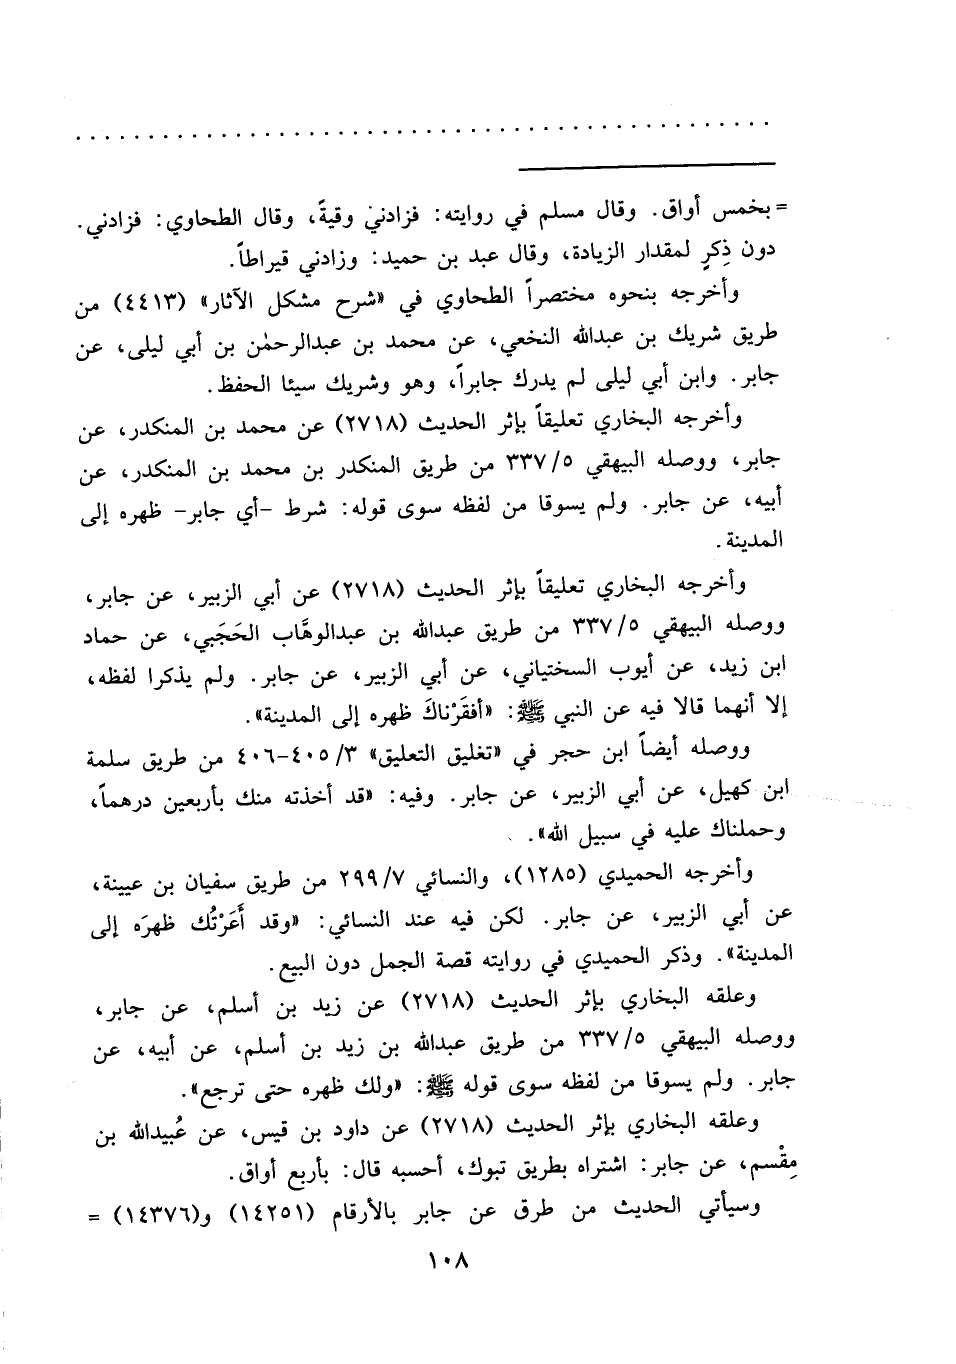 = بخمس أواق. وقال مسلم في روايته: فزادني وقيةً، وقال الطحاوي: فزادني.
دون ذِكرٍ لمقدار الزيادة، وقال عبد بن حميد: وزادني قيراطاً.
وأخرجه بنحوه مختصراً الطحاوي في «شرح مشكل الآثار» (٤٤١٣) من
طريق شريك بن عبدالله النخعي، عن محمد بن عبدالرحمٰن بن أبي ليلى، عن
جابر. وابن أبي ليلى لم يدرك جابراً، وهو وشريك سيئا الحفظ.
وأخرجه البخاري تعليقاً بإثر الحديث (٢٧١٨) عن محمد بن المنكدر، عن
جابر، ووصله البيهقي ٣٣٧/٥ من طريق المنكدر بن محمد بن المنكدر، عن
أبيه، عن جابر. ولم يسوقا من لفظه سوى قوله: شرط -أي جابر- ظهره إلى
المدينة.
وأخرجه البخاري تعليقاً بإثر الحديث (٢٧١٨) عن أبي الزبير، عن جابر،
ووصله البيهقي ٣٣٧/٥ من طريق عبدالله بن عبدالوهَّاب الحَجَبي، عن حماد
ابن زيد، عن أيوب السختياني، عن أبي الزبير، عن جابر. ولم يذكرا لفظه،
إلا أنهما قالا فيه عن النبي ﷺ: «أفقَرْناكَ ظهره إلى المدينة».
ووصله أيضاً ابن حجر في «تغليق التعليق» ٤٠٥/٣-٤٠٦ من طريق سلمة
ابن كهيل، عن أبي الزبير، عن جابر. وفيه: «قد أخذته منك بأربعين درهماً،
وحملناك عليه في سبيل الله».
وأخرجه الحميدي (١٢٨٥)، والنسائي ٢٩٩/٧ من طريق سفيان بن عيينة،
عن أبي الزبير، عن جابر. لكن فيه عند النسائي: «وقد أَعَرْتُك ظهرَه إلى
المدينة». وذكر الحميدي في روايته قصة الجمل دون البيع.
وعلقه البخاري بإثر الحديث (٢٧١٨) عن زيد بن أسلم، عن جابر،
ووصله البيهقي ٣٣٧/٥ من طريق عبدالله بن زيد بن أسلم، عن أبيه، عن
جابر. ولم يسوقا من لفظه سوى قوله ﷺ: «ولك ظهره حتى ترجع».
وعلقه البخاري بإثر الحديث (٢٧١٨) عن داود بن قيس، عن عُبيدالله بن
مِقْسم، عن جابر: اشتراه بطريق تبوك، أحسبه قال: بأربع أواق.
وسيأتي الحديث من طرق عن جابر بالأرقام (١٤٢٥١) و(١٤٣٧٦) =
١٠٨